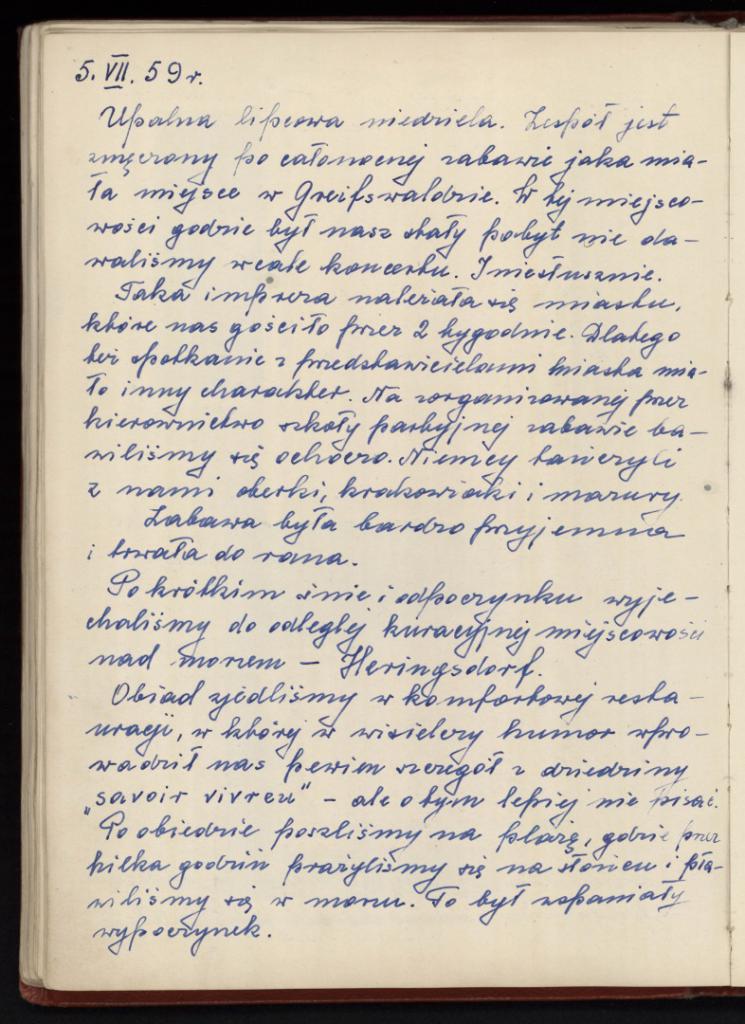 5. VII. 59 r.
Upalna lipcowa niedziela. Zespół jest
zmęczony po całonocnej zabawie jaka mia-
ła miejsce w Greifswaldzie. W tej miejsco-
wości gdzie był nasz stały pobyt nie da-
waliśmy wcale koncertu. I niesłusznie.
Taka impreza należała się miastu,
które nas gościło przez 2 tygodnie. Dlatego
też spotkanie z przedstawicielami miasta mia-
ło inny charakter. Na zorganizowanej przez
kierownictwo szkoły partyjnej zabawie ba-
wiliśmy się ochoczo. Niemcy tańczyli
z nami oberki, krakowiaki i mazury.
Zabawa była bardzo przyjemna
i trwała do rana.
Po krótkim śnie i odpoczynku wyje-
chaliśmy do odległej kuracyjnej miejscowości
nad morzem – Heringsdorf.
Obiad zjedliśmy w komfortowej resta-
uracji, w której w wisielczy humor wpro-
wadził nas pewien szczegół z dziedziny
"savoir vivreu" – ale o tym lepiej nie pisać.
Po obiedzie poszliśmy na plażę, gdzie przez
kilka godzin prażyliśmy się na słońcu i pła-
wiliśmy się w morzu. To był wspaniały
wypoczynek.